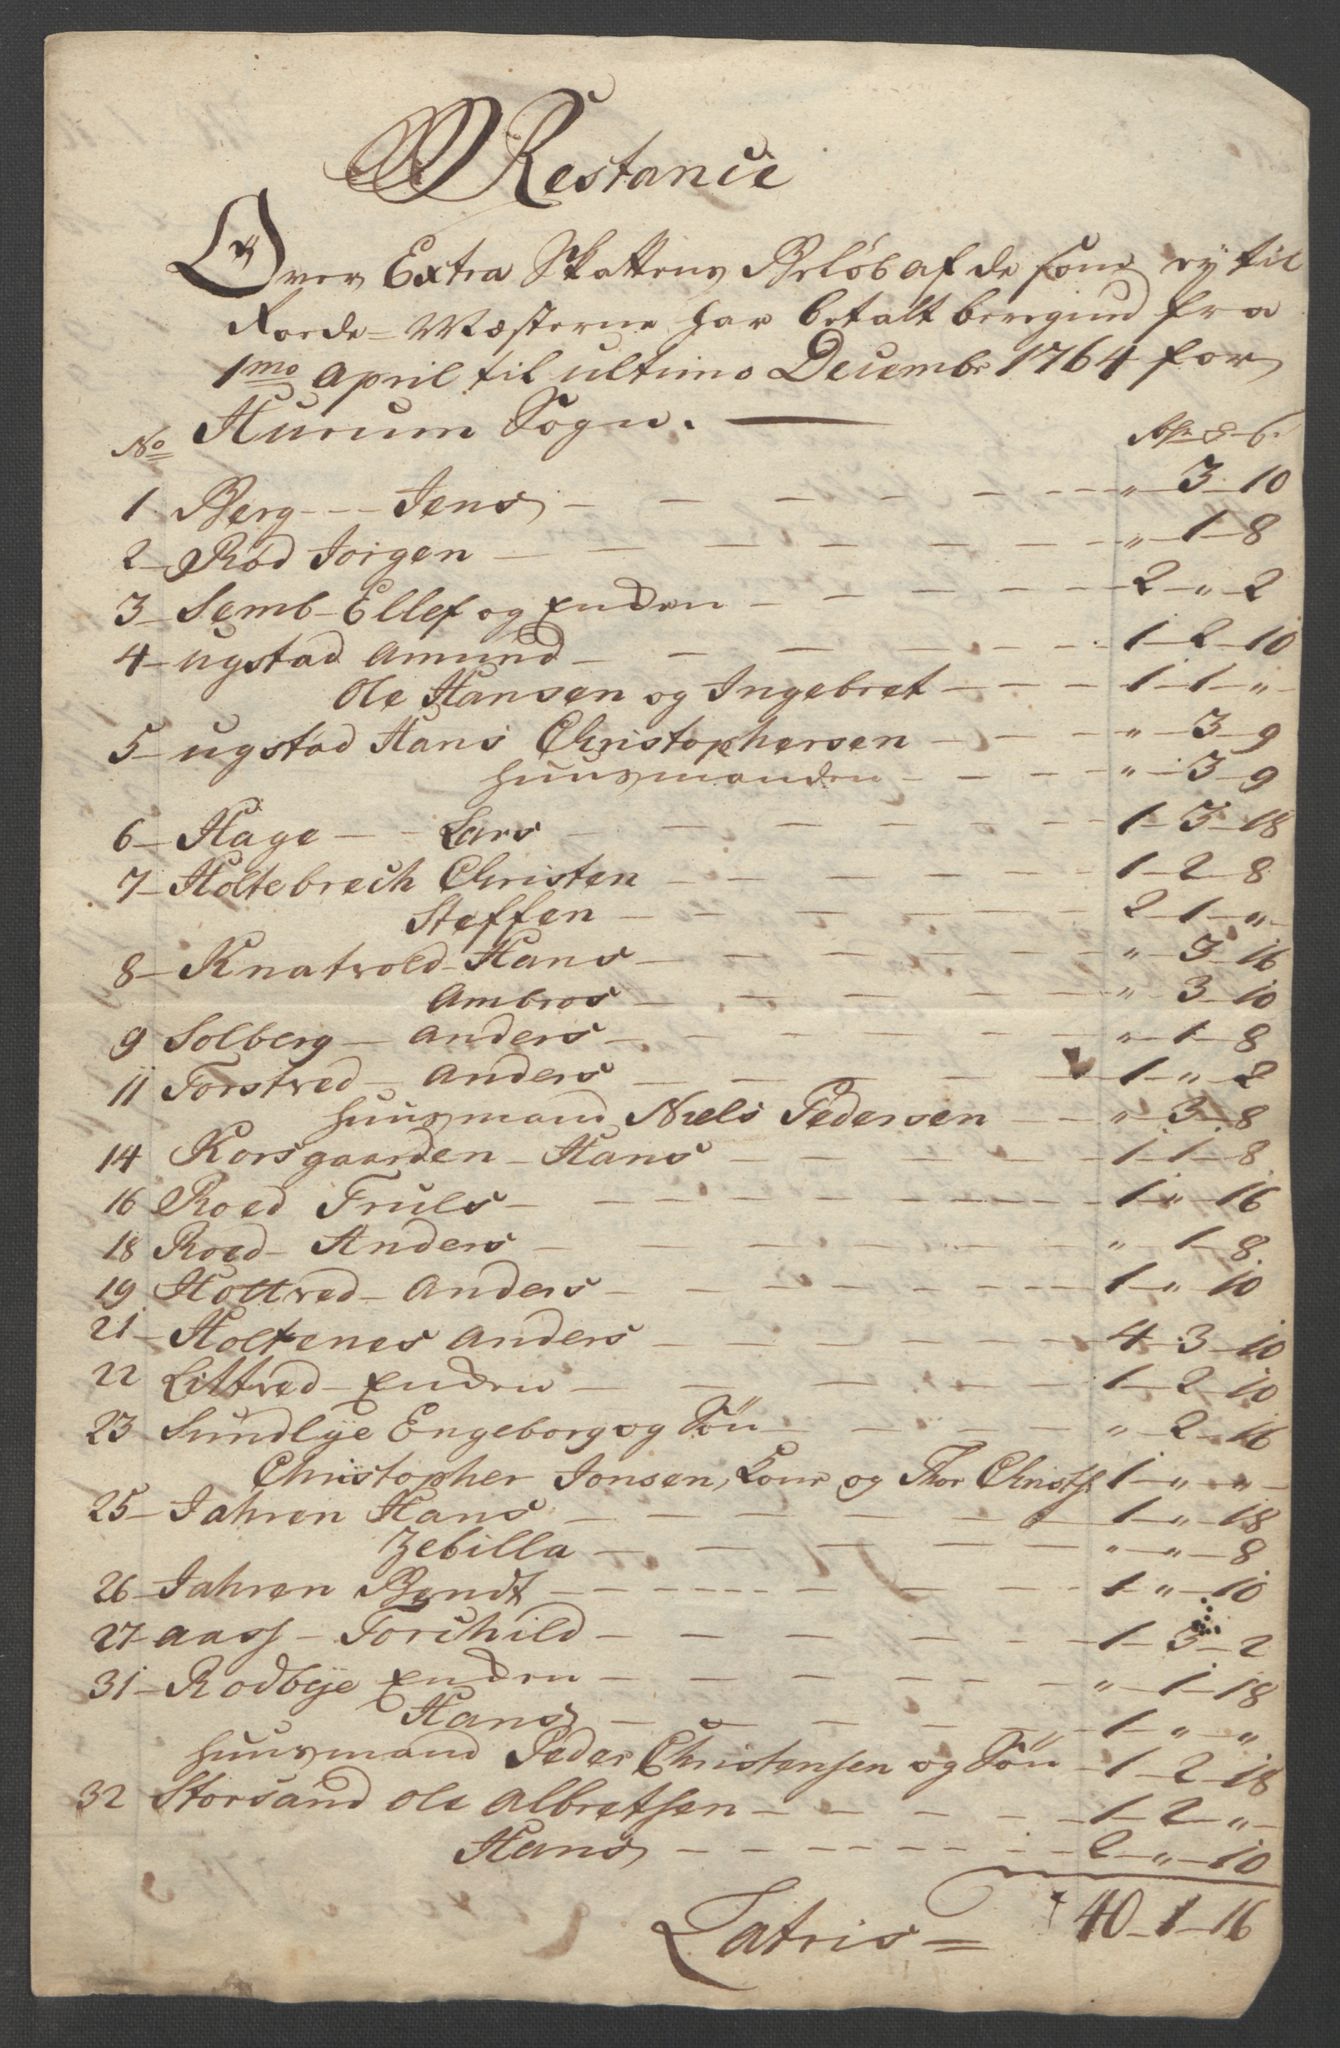 Restance
Over Extra Skattens Beløb af de som ey til
Roede-Mæsterne har betalt beregned fra
1mo April til ultimo Decembr 1764 for
Hurum Sogn.
No Rdr ß
1 Berg - - - Jens - - - " 3 - 10
2 - Rød Jørgen - - - " 1 - 8
3 - Semb - Ellef og Enden - - - 2 - " - 2
4 - Ugstad Amund - - - 1 - 2 - 10
Ole Hansen og Ingebret - - - 1 - 1 - " -
5 - Ugstad Hans Christophersen - - - " 3 - 9
Huusmanden - - - " 3 - 9
6 - Hage - - Lars - - - 1 - 3 - 18
7 - Holtebrech Christen - - - 1 - 2 - 8
Steffen - - - 2 - 1 - " -
8 - Knatvold - Hans - - - " 3 - 16
Ambros - - - " 3 - 10
9 Solberg - Anders - - - " - 1 - 8
11 Torstved - Anders - - - 1 - " - 2
Huusmand Niels Pedersen - - " 3 - 8
14 Korsgaarden - Hans - - - 1 - 1 - 8
16 Roed Truls - - - 1 - " - 16
18 Roed - Anders - - - " - 1 - 8
19 Holtved - Anders - - - 1 - " 10
21 - Holtenes Anders - - - 4 - 3 - 10
22 Littved - Enden - - - 1 - 2 - 10
23 Sundbye Engeborg og Søn - - - " - 2 - 16
Christopher Jonsen, Lour og Thor Christs 1 - " - " -
25 - Jahren Hans - - - 1 - " - 18
Zebilla - - - " - " - 8
26 - Jahren Bendt - - - 1 - " - 10
27 - Aass - Torchild - - - 1 - 3 - 2
31 - Rødbye Enden - - - " - 1 - 18
Hans - - - 1 - " - "
Huusmand Peder Christensen og Søn - 1 - 2 - 18
32 Storsand Ole Albretsen - - - 1 - 2 - " -
Hans - - - 2 - " - 10
Latris = 40 - 1 - 16